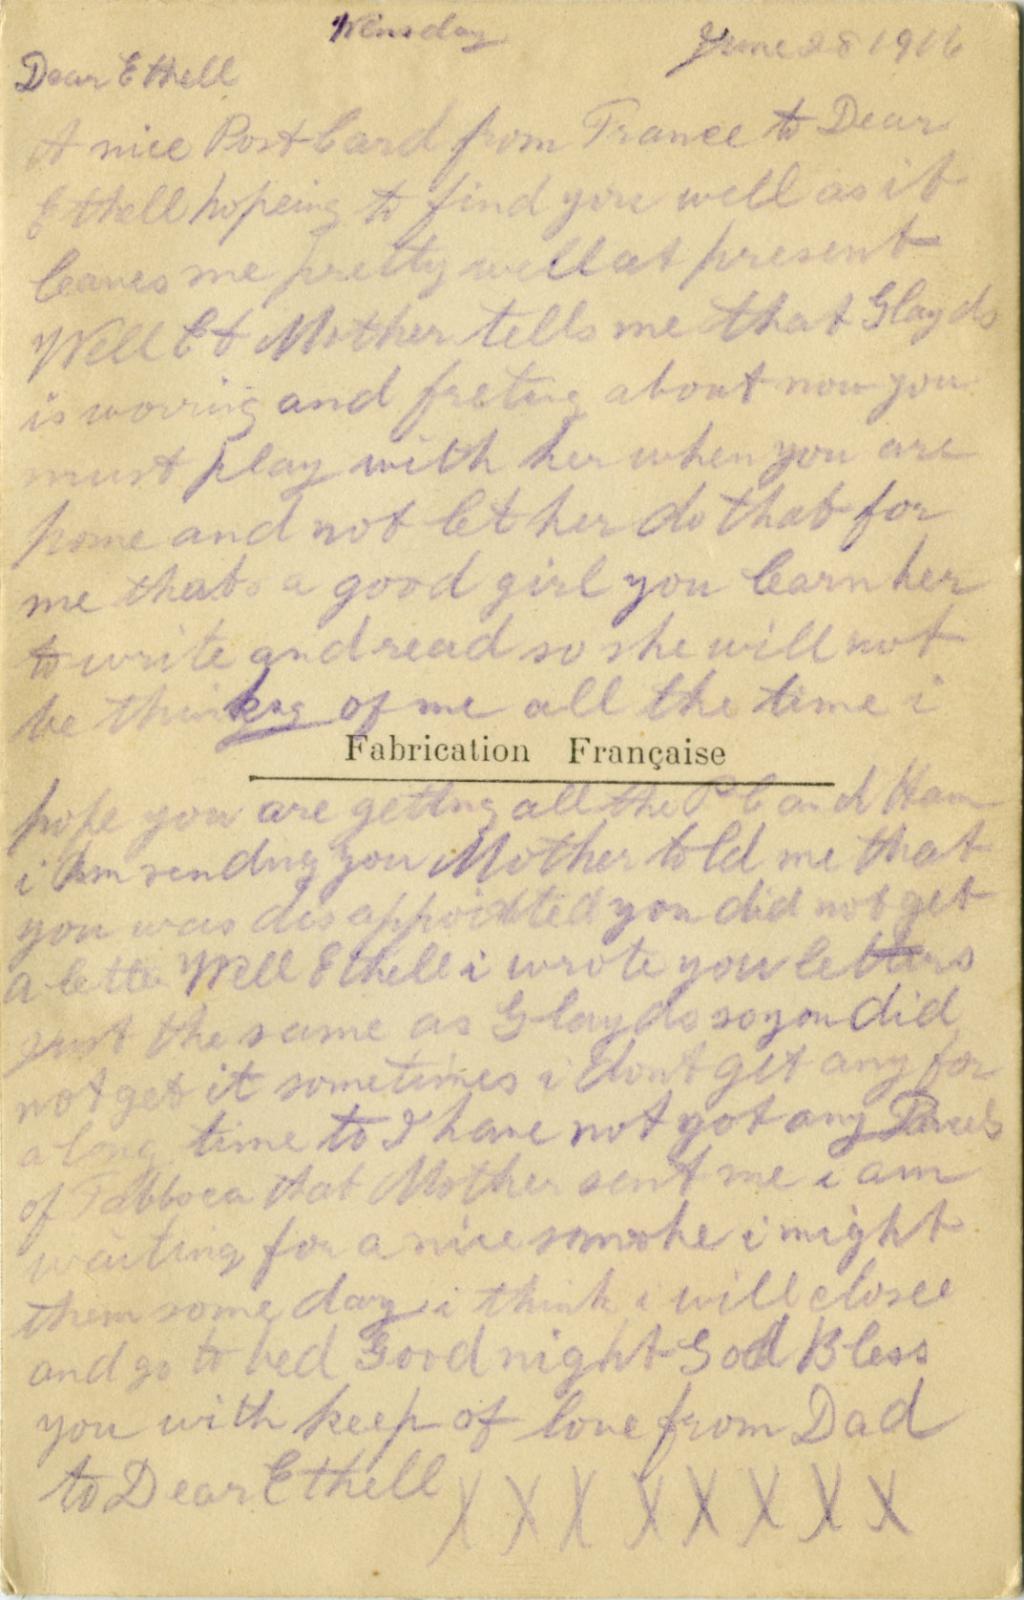 Wensday June 28 1916
Dear Ethell
A nice Post Card from France to Dear
Ethell hopeing to find you well as it
leaves me pretty well at present
Well Et Mother tells me that Glayds
is woring and freting about now you
must play with her when you are
home and not let her do that for
me thats a good girl you learn her
to write and read so she will not
be thinking of me all the time i
Fabrication Française
hope you are getting all the P C and Ham
i Am sending you Mother told me that
you was disappointed you did not get
a letter Well Ethell i wrote you letters
just the same as Glayds so you did
not get it sometimes i dont get any for
a long time to I have not got any Parcels
of Tobboca that Mother sent me i am
waiting for a nice smoke i might
them some day i think i will closee
and go to bed Good night God Bless
you with keep of love from Dad
to Dear Ethell X X X X X X X X